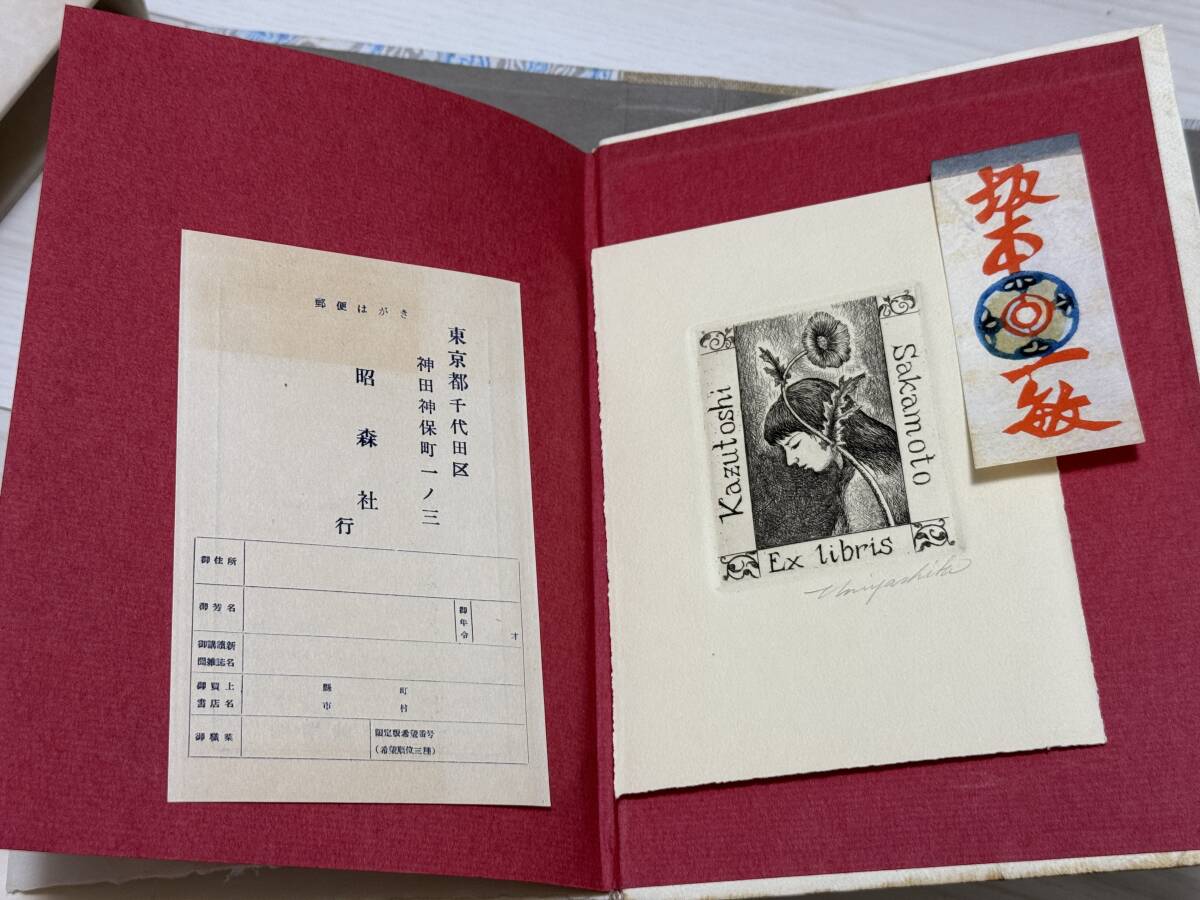 郵便はがき
東京都千代田区
神田神保町一ノ三
昭森社
行
御住所
御芳名
御年令
才
御購讀新
聞雑誌名
御買上
書店名
縣
市
町
村
御職業
限定版希望番号
(希望順位三種)
Kazutoshi
Sakamoto
Ex libris
坂本
一敏